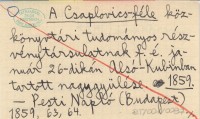 A Csaplovics-féle köz-
könyvtári tudományos rész-
vénytársulatnak f. é. ja-
nuár 26-ikán Alsó-Kubinban
tartott nagygyülése 1859.
– Pesti Napló (Budapest)
1859. 63, 64.